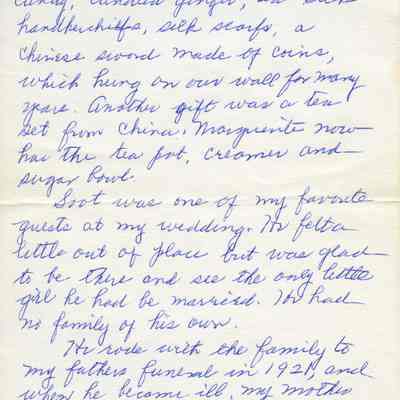 candy, candied ginger, silk
handkerchiefs, silk scarfs, a
Chinese sword made of coins,
which hung on our wall for many
years. Another gift was a tea
set from China. Marguerite now
has the tea pot, creamer and
sugar bowl.
Soot was one of my favorite
guests at my wedding. He felt a
little out of place but was glad
to be there and see the only little
girl he had be married. He had
no family of his own.
He rode with the family to
my fathers funeral in 1921, and
when he became ill, my mother